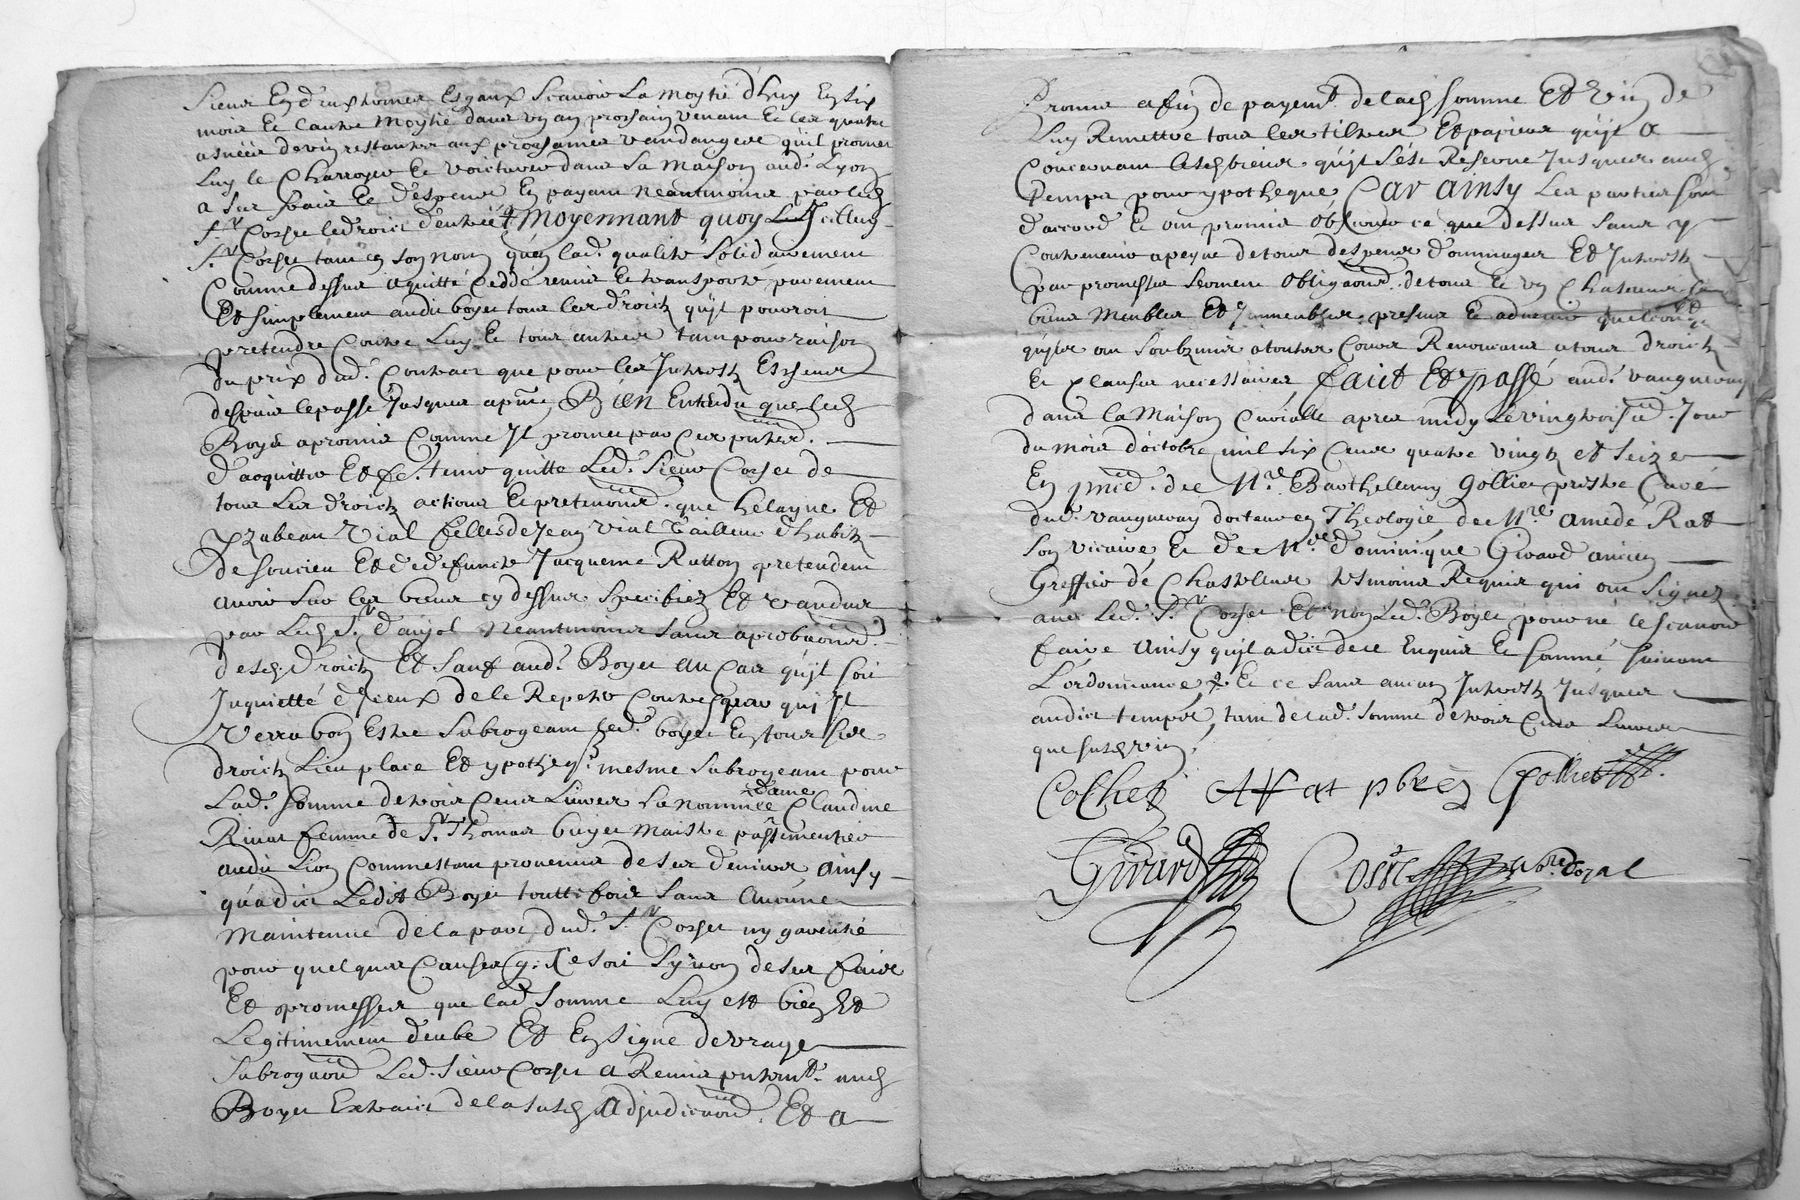 Sieur En deux termes Esgaux Scavoir La moytié d'huy En six
mois Et l'autre moytié dans un an prochain venant Et les quatre
asnées de vin restantes aux prochaines vandanges qu'il promet
Luy le Charroyer Et voicturer dans sa maison aud. Lyon
a ses frais Et despens En payant neantmoins par led.
Sr. Cosset le droict d'entrée Moyennant quoy Led.
Sr. Cosset tant en son nom qu'en lad. qualité solidairement
Comme dessus a quitté Ceddé remis Et transporté purement
Et simplement audit boyer tous les droictz qu'jl pouvoit
pretendre Contre Luy Et tous autres tant pour raison
du prix dud. Contract que pour les Jnterestz Et
despuis le passé Jusques a pnt, Bien Entendu que led.
Boyer a promis Comme Jl promet par Ces pntes.
d'acquitter Et tenir quitte Led. Sieur Cosset de
tous Les droictz actions Et pretentions que helayne Et
yzabeau Vial filles de Jean Vial Tailleur d'habitz
de Soucieu Et de deffuncte Jacqueme Ratton pretendent
avoir sur les biens cy dessus speciffiez Et vandus
par Led. Sr. daujol neantmoins sans aprobaon
desd. droictz Et sauf aud. Boyer au Cas qu'jl soit
Jnquietté d'jceux de le Repeter Contre qui Jl
Verra bon Estre subrogeant led. boyer En tous ses
droictz Lieu place Et ypotheq. mesme subrogeant pour
Lad. somme de trois Cens Livres La nommée dame Claudine
Rivat femme de Sr. Thomas boyer maistre passementier
audit Lion Comme estant provenus de ses deniers ainsy
qu'a dict Ledit Boyer touttefois sans aucune
maintenue de la part dud. Sr. Cosset ny garentie
pour quelque Cause q. Ce soit synon de ses faict
Et promesses que lad. somme Luy est bien Et
Legitimement deube Et En signe de vraye
subrogaon Led. sieur Cosset a Remis pntemt. aud.
Boyer Extraict de la susd. adjudicaon. Et a
promis a fin de payemt. de lad. somme Et vin de
Luy Remettre tous les tiltres Et papiers qu'jl a
Concernant lesd. biens qu'jl s'est Reservé Jusques aud.
temps pour ypotheque Car ainsy Les parties sont
d'accord Et ont promis observer ce que dessus sans y
Contrevenir a peyne de tous despens dommages Et Jnterestz
par promesses serment obligaons de tous Et un Chascuns
biens meubles Et Jmmeubles presens Et advenir quelconq.
qu'jls ont soubzmis a toutes Cours Renonceans a tous droictz
Et Clauses necessaires faict Et passé aud. vaugneray
dans la Maison Curialle apres midy Le vingtroisie. Jour
du mois d'octobre mil six Cens quatre vingtz et seize
En pnce. de Mre. Barthellemy Gollier prestre Curé
dud. vaugneray docteur en Theologie de Mre Amedé Rat
son vicaire Et de Mre dominique Girard ancien
Greffier de Chastelus tesmoins Requis qui ont signez
avec Led. Sr. Cosset Et non Led. Boyer pour ne le scavoir
faire ainsy qu'jl a dict de ce Enquis Et sommé suivant
L'ordonnance Et ce sans aucun Jnterestz Jusques
audict temps, tant de lad. somme de trois Cens Livres
que susd. vin.
Cosset ARat pbre Gollier
Girard Cosse Nore. Royal